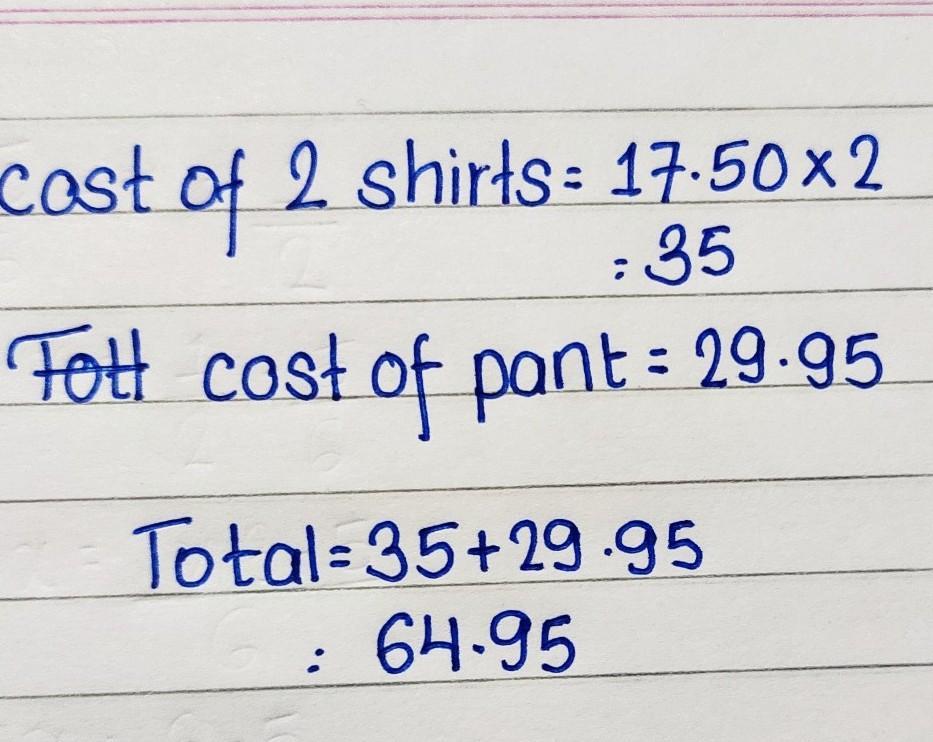 cost of 2 shirts = 17.50 x 2
= 35
cost of pant = 29.95
Total = 35 + 29.95
= 64.95